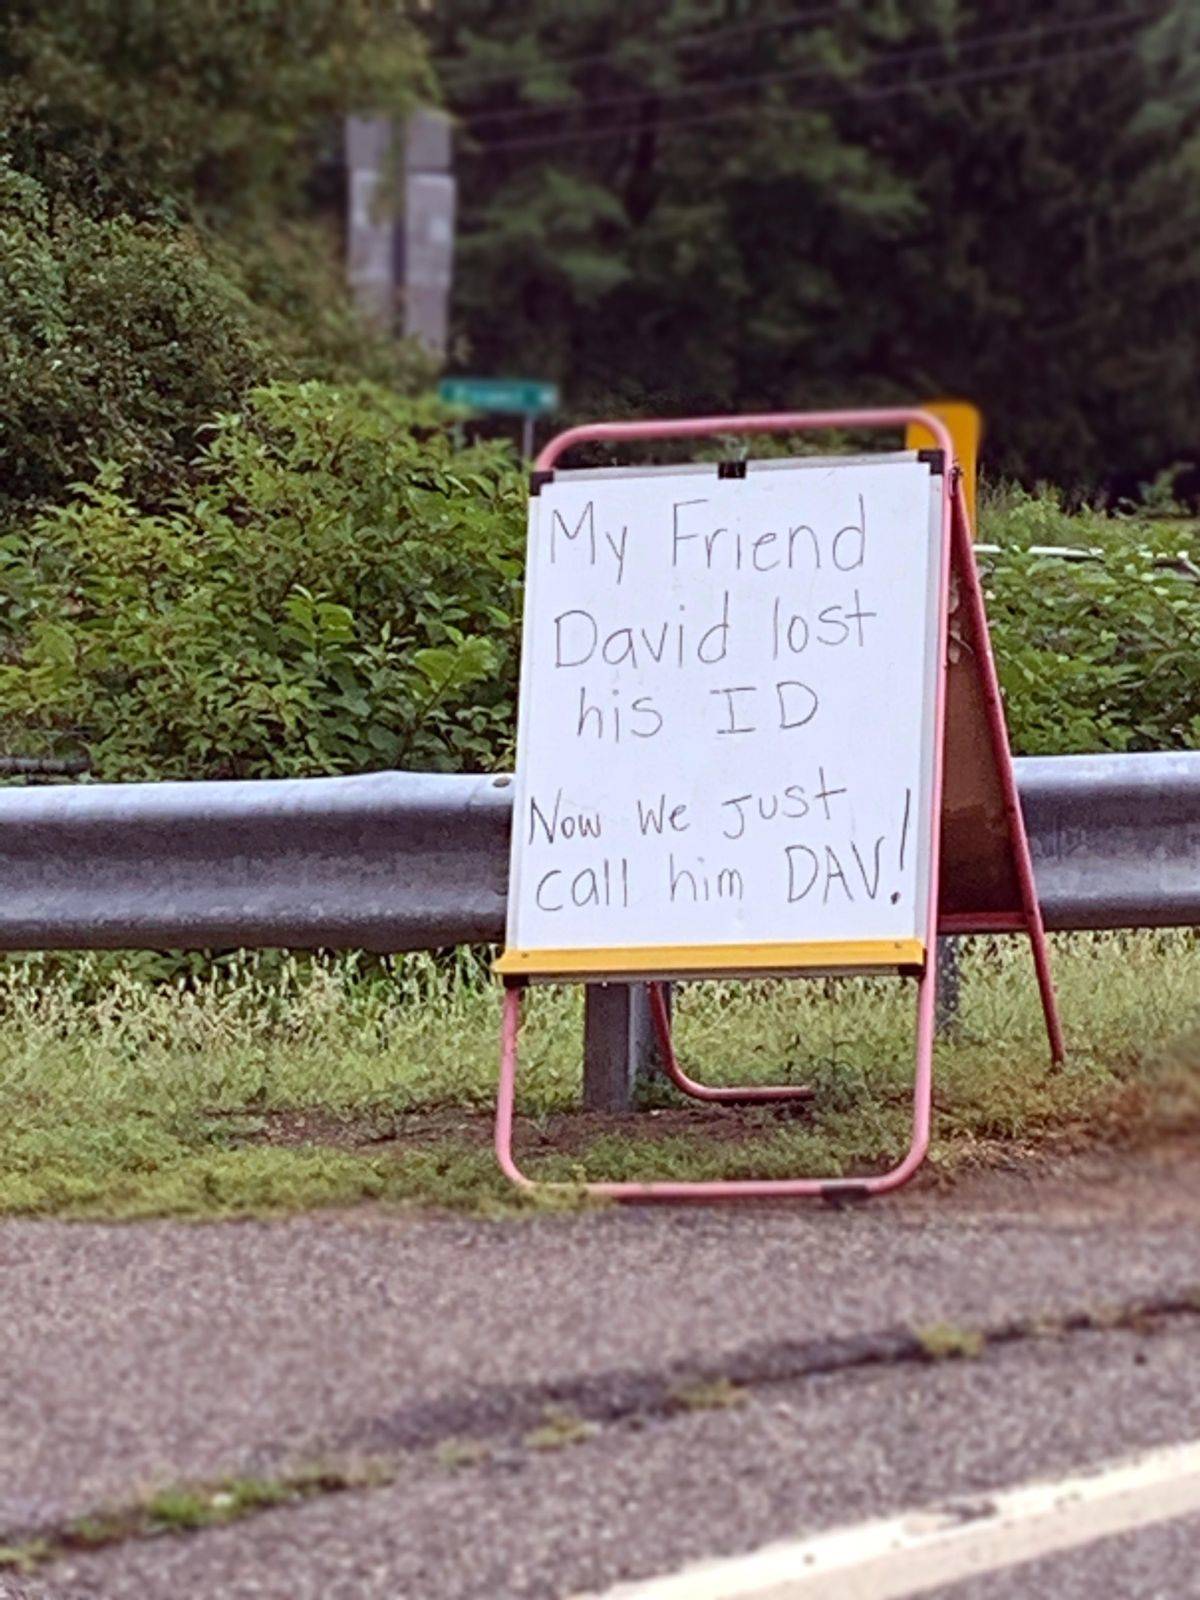 My Friend
David lost
his ID
Now We just
call him DAV!